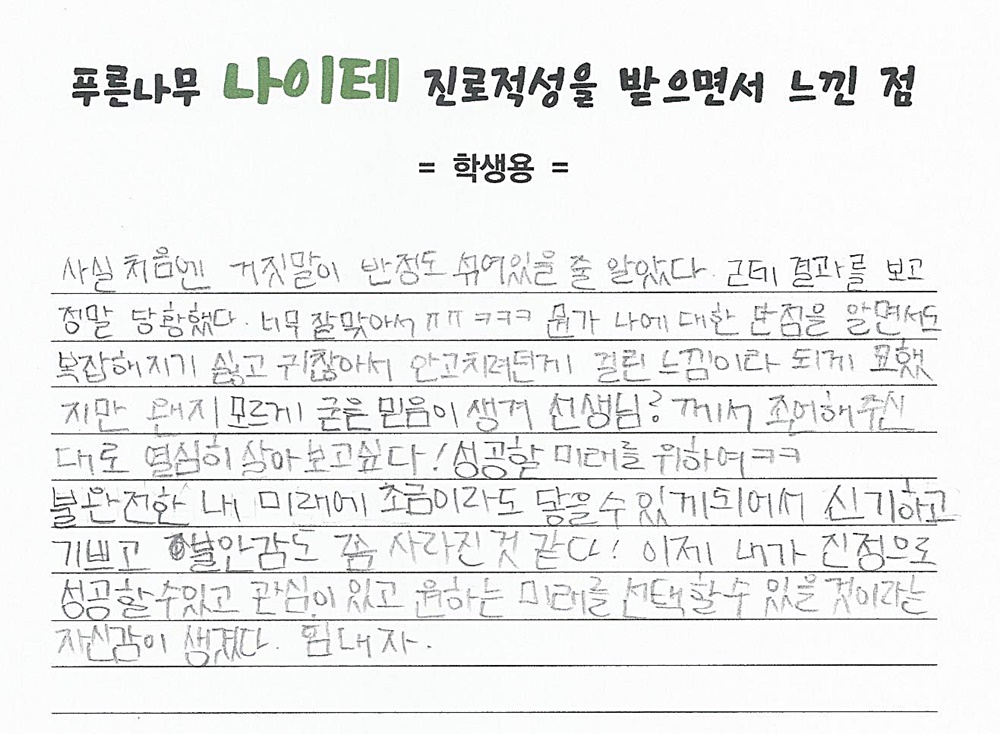 푸른나무 나이테 진로적성을 받으면서 느낀 점
= 학생용 =
사실 처음엔 거짓말이 반정도 섞여있을 줄 알았다. 근데 결과를 보고
정말 당황했다. 너무 잘맞아서 ㅠㅠ ㅋㅋㅋ 뭔가 나에 대한 단점을 알면서도
복잡해지기 싫고 귀찮아서 안고치려던게 걸린 느낌이라 되게 묘했
지만 왠지 모르게 굳은 믿음이 생겨 선생님? 께서 조언해주신
대로 열심히 살아보고싶다! 성공할 미래를 위하여ㅋㅋ
불완전한 내 미래에 조금이라도 닿을수 있게되어서 신기하고
기쁘고 불안감도 좀 사라진것 같다! 이제 내가 진정으로
성공할수있고 관심이 있고 원하는 미래를 선택할수 있을 것이라는
자신감이 생겼다. 힘내자.